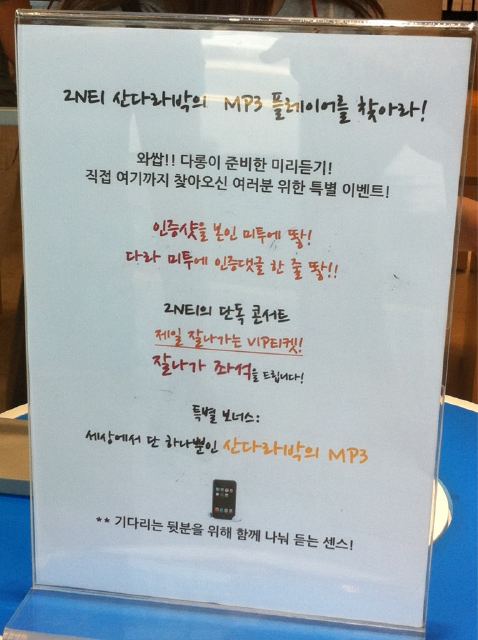 2NE1 산다라박의 MP3 플레이어를 찾아라!
와쌉!! 다롱이 준비한 미리듣기!
직접 여기까지 찾아오신 여러분 위한 특별 이벤트!
인증샷을 본인 미투에 뙇!
다라 미투에 인증댓글 한 줄 뙇!!
2NE1의 단독 콘서트
제일 잘나가는 VIP티켓!
잘나가 좌석을 드립니다!
특별 보너스:
세상에서 단 하나뿐인 산다라박의 MP3
** 기다리는 뒷분을 위해 함께 나눠 듣는 센스!